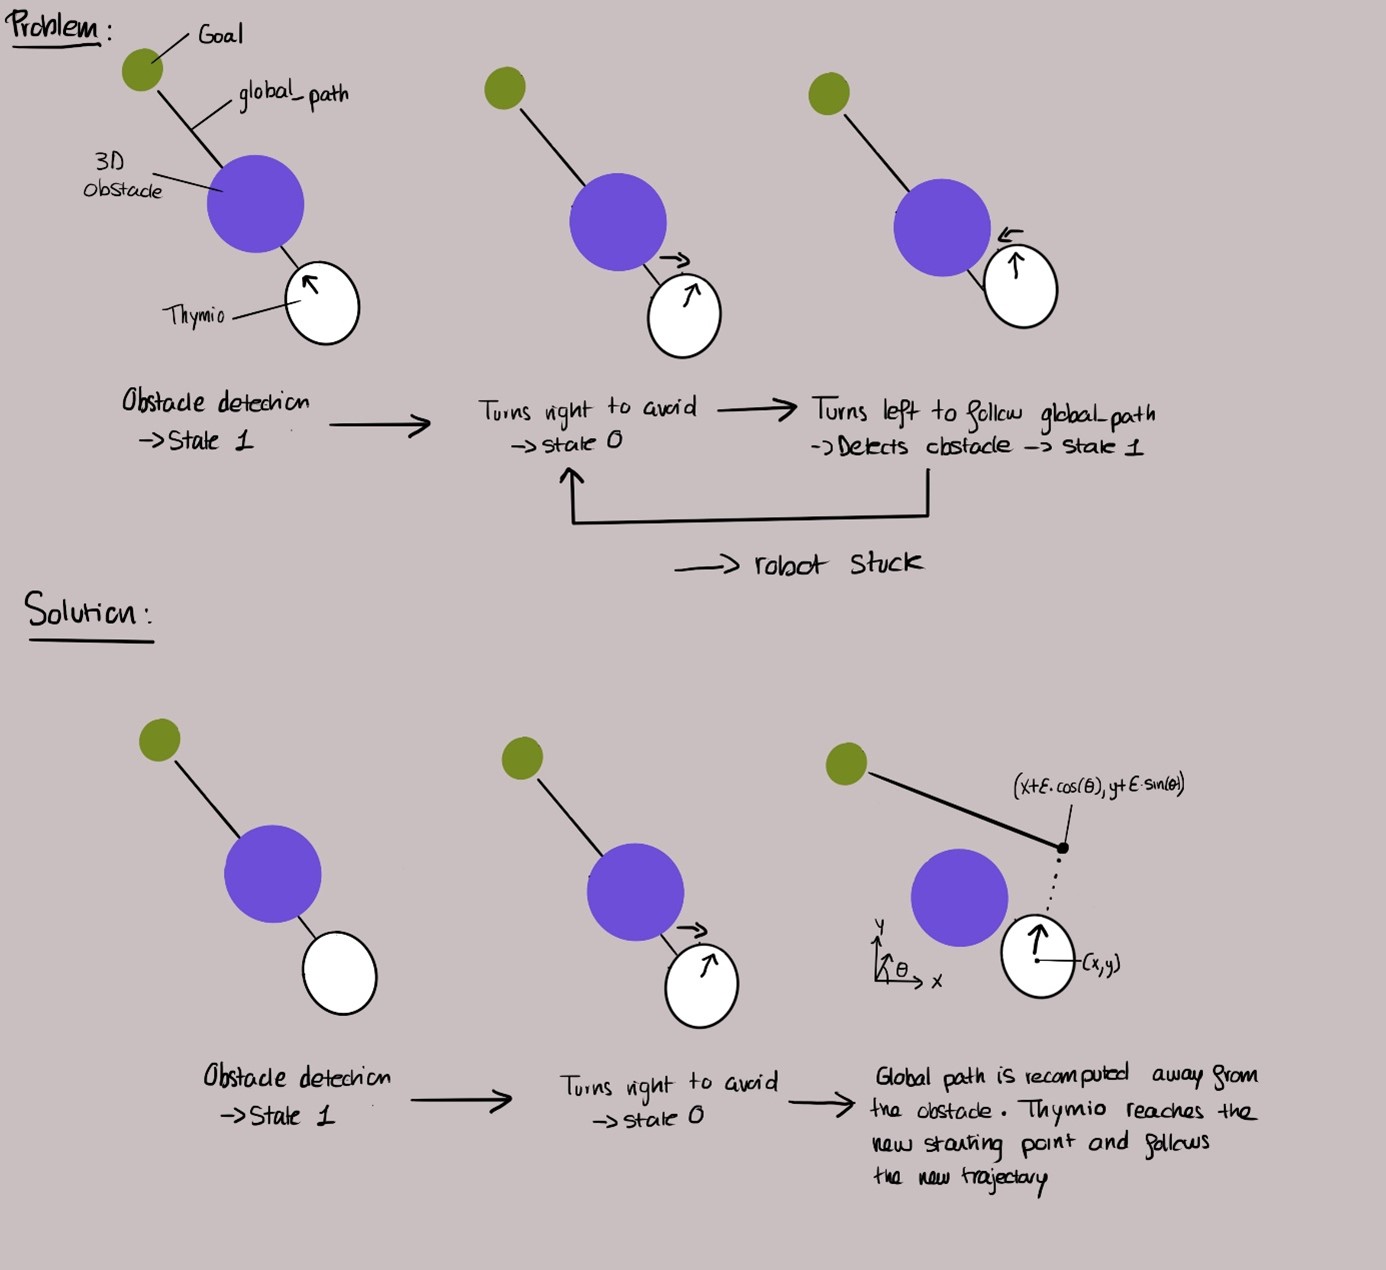 Problem:
Goal
global_path
3D
obstacle
Thymio
Obstacle detection
-> State 1
Turns right to avoid
-> State 0
Turns left to follow global_path
-> Detects obstacle -> State 1
-> robot stuck
Solution:
(x+ε.cos(θ), y+ε.sin(θ))
y
θ
x
(x,y)
Obstacle detection
-> State 1
Turns right to avoid
-> State 0
Global path is recomputed away from
the obstacle. Thymio reaches the
new starting point and follows
the new trajectory